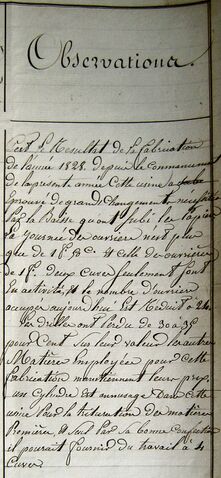 Observations.
C'est le Résultat de la fabrication
de l'année 1828. depuis le commencement
de la présente année Cette usine a
éprouvé de grand Changement, 
par la Baisse qu'ont Subi les Papiers
la journée des ouvriers n'est plus
que de 1f. 50c. et celle des ouvrières
de 1f. deux Cuves seulement sont
en activité, et le nombre d'ouvriers
occupés aujourd'hui Est Réduit a 24.
les drilles ont Perdu de 30 a 35
pour Cent sur leur valeur les autres
Matière Employée pour Cette
fabrication maintiennent leurs prix,
un Cylindre est en usage Dans Cette
usine Pour la trituration des matières
Première, et Seul Par sa bonne Confection
il pourait fournir du travail à 4
Cuves